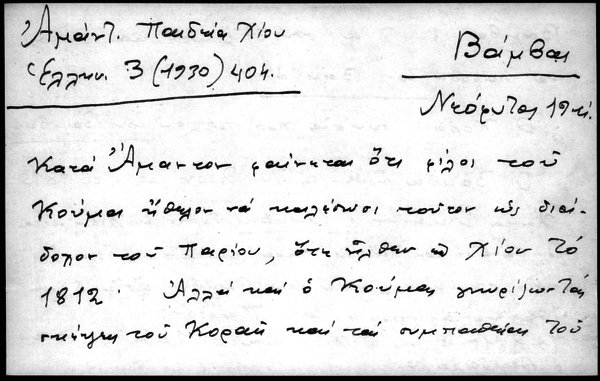 Ἀμάντ. Παιδεία Χίου
Ἑλλην. 3 (1930) 404.
Βάμβας
Νεόφυτος 19
Κατά Ἄμαντον φαίνεται ὅτι φίλοι τοῦ
Κούμα ἤθελον νά καλέσωσι τοῦτον ὡς διάδοχον
τοῦ Παρίου, ὅτε ἦλθεν Χίον τό
1812. Ἀλλά καί ὁ Κούμας γνωρίζων τάς
σκέψεις τοῦ Κοραῆ καί τάς συμπαθείας τοῦ